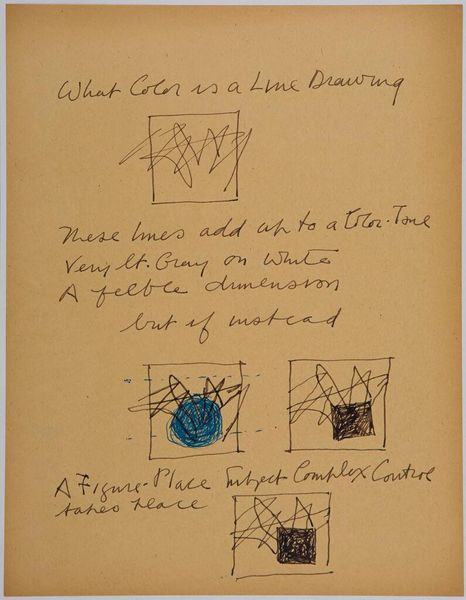 What Color is a Line Drawing
These lines add up to a Color-Tone
Very Lt. Gray on White
A feeble dimension
but if instead
A Figure-Place Subject Complex Control
takes place